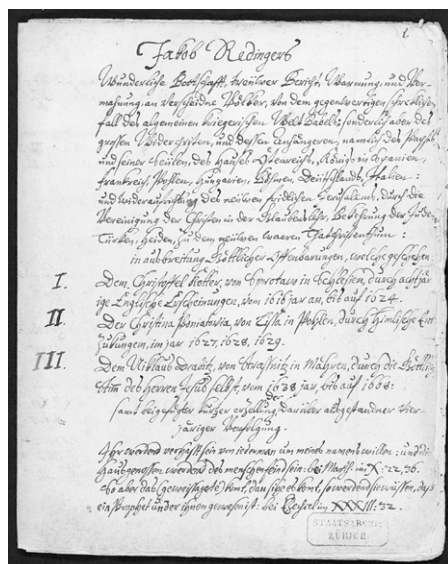 1.
Jakob Redingers
Wunderliche Bottschafft, trauwer Bericht, Warnung, und Ver-
mahnung, an verscheidne Völker, von dem gegenwertigen schreklichen
fall des algemeinen kriegerischen Welt Babels: sonderlich aber des
grossen Widerchristen, und dessen Anhängeren, namlich des Papsts
und seiner Seülen, des Hauses Ostenreich, Königs in Spanien,
Frankreich, Pohlen, Hungarien, Böhmen, Deütschlands, Italien:
und wideraufrichtung des neüwen fridlichen Jerusalems, durch die
Vereinigung der Christen in der Glaubenslehr, Bekehrung der Juden
Türken, Heiden, zu dem neüwen waaren Christenthum:
in ausbreitung Göttlicher Offenbarungen, welche geschehen
I. Dem Christoffel Kotter, von Sprotaw in Schlesien, durch achtjär
ige Englische Erscheinungen, vom 1616 jar an, bis auf 1624.
II. Der Christina Poniatovia, von Lissa in Pohlen, durch Himlische Ent
zükungen, im jar 1627, 1628, 1629.
III. Dem Niklaus Drabitz, von Strassnitz in Mähren, durch die Göttliche
stim des Herren Jesus selbst, vom 1638 jar, bis auf 1668:
samt beigefügter kurzer erzellung, der darüber ausgestandner vier-
järiger Verfolgung.
Ihr werdend verhasst sein von iederman um meines namens willen: und die
Hausgenossen werdend des menschen feind sein: bei Matth. im X: 22, 36.
So aber das (geweissagete) komt, dan sihe es komt, so werdend sie wüssen, dass
ein Prophet under ihnen gewesen ist: bei Ezechiel im XXXIII: 32.
STAATSARCHIV
ZÜRICH